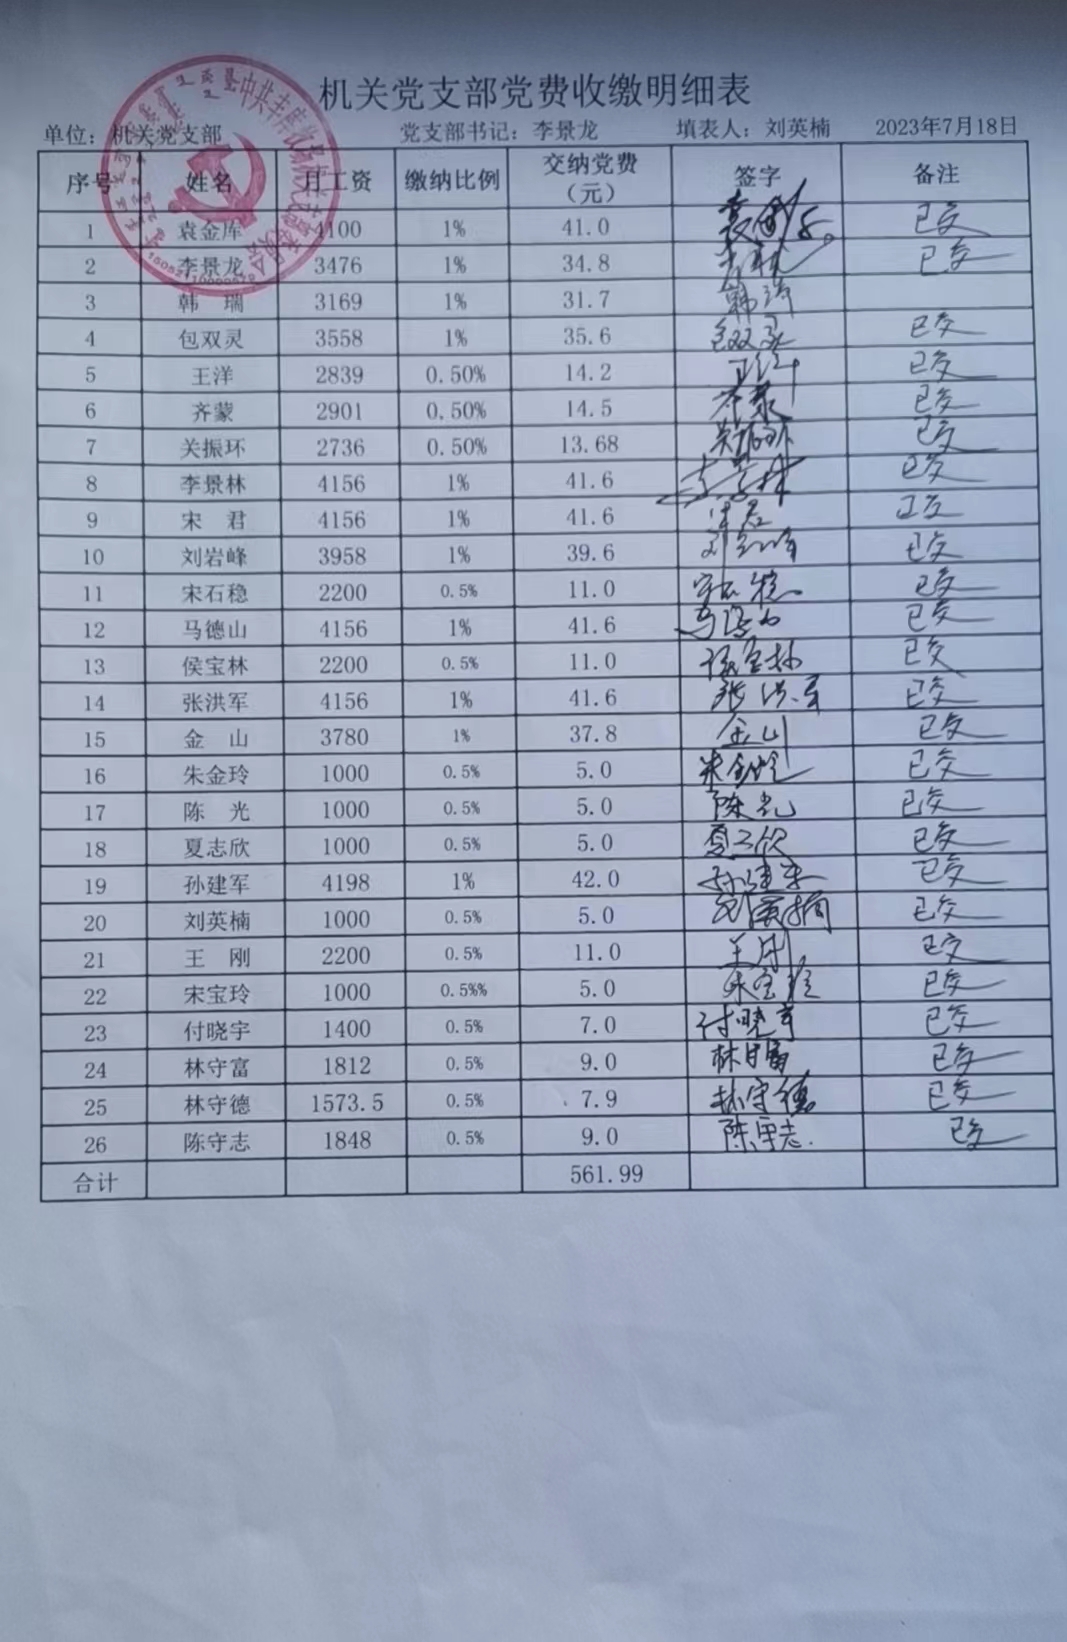 机关党支部党费收缴明细表
单位：机关党支部 党支部书记：李景龙 填表人：刘英楠 2023年7月18日
序号 姓名 月工资 缴纳比例 交纳党费（元） 签字 备注
1 袁金库 4100 1% 41.0 已交
2 李景龙 3476 1% 34.8 已交
3 韩 瑞 3169 1% 31.7 韩瑞
4 包双灵 3558 1% 35.6 包双灵 已交
5 王洋 2839 0.50% 14.2 王洋 已交
6 齐蒙 2901 0.50% 14.5 齐蒙 已交
7 关振环 2736 0.50% 13.68 关振环 已交
8 李景林 4156 1% 41.6 李景林 已交
9 宋 君 4156 1% 41.6 宋君 已交
10 刘岩峰 3958 1% 39.6 刘岩峰 已交
11 宋石稳 2200 0.5% 11.0 宋石稳 已交
12 马德山 4156 1% 41.6 马德山 已交
13 侯宝林 2200 0.5% 11.0 侯宝林 已交
14 张洪军 4156 1% 41.6 张洪军 已交
15 金 山 3780 1% 37.8 金山 已交
16 朱金玲 1000 0.5% 5.0 朱金玲 已交
17 陈 光 1000 0.5% 5.0 陈光 已交
18 夏志欣 1000 0.5% 5.0 夏志欣 已交
19 孙建军 4198 1% 42.0 孙建军 已交
20 刘英楠 1000 0.5% 5.0 刘英楠 已交
21 王 刚 2200 0.5% 11.0 王刚 已交
22 宋宝玲 1000 0.5%% 5.0 宋宝玲 已交
23 付晓宇 1400 0.5% 7.0 付晓宇 已交
24 林守富 1812 0.5% 9.0 林守富 已交
25 林守德 1573.5 0.5% 7.9 林守德 已交
26 陈守志 1848 0.5% 9.0 陈守志 已交
合计 561.99